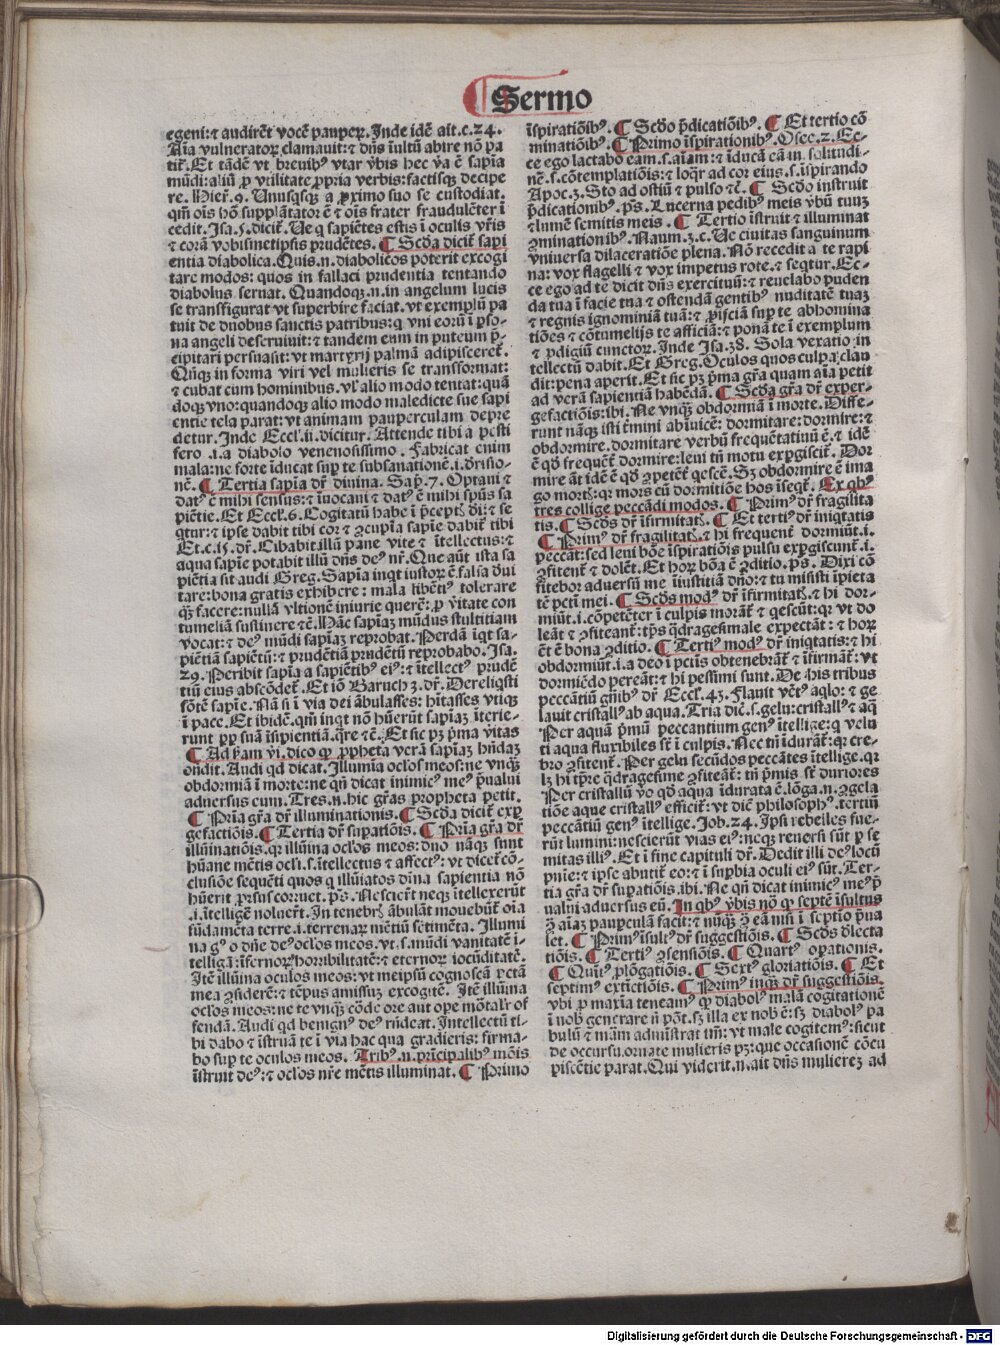 Sermo
egeni:⁊ audirēt vocē pauperꝝ. Inde idē ait.c.24.
Aīa vulneratorꝝ clamauit:⁊ dn̄s īultū abire nō pa
titr̄. Et tādē vt breuibꝰ vtar v̄bis hec v̄a ē sapīa
mūdi:aliū ꝓ vtilitate ꝓpria verbis:factisqꝫ decipe
re. Hier̄.9. Unusqsqꝫ a ꝓximo suo se custodiat.
qm̄ oīs hō supplātator ē ⁊ oīs frater fraudulēter ī
cedit. Isa.5.dicit̄. Ue q sapiētes estis ī oculis vr̄is
⁊ corā vobismetipsis prudētes. ¶ Scd̄a dicit̄ sapi
entia diabolica. Quis.n.diabolicos poterit excogi
tare modos: quos in fallaci prudentia tentando
diabolus seruat. Quandoqꝫ.n.in angelum lucis
se transfigurat vt superbire faciat. vt exemplū pa
tuit de duobus sanctis patribus:q vni eorū ī ꝑso-
na angeli deseruiuit:⁊ tandem eum in puteum p̄-
cipitari persuasit:vt martyrij palmā adipisceret̄.
Qn̄qꝫ in forma viri vel mulieris se transformat:
⁊ cubat cum hominibus. vl̓ alio modo tentat:quā
doqꝫ vno:quandoqꝫ alio modo maledicte sue sapi
entie tela parat:vt animam pauperculam depre
detur. Inde Eccl̓.ii.dicitur. Attende tibi a pesti
fero .i.a diabolo venenosissimo. Fabricat enim
mala:ne forte īducat suꝑ te subsanationē.i.d̓risio-
nē. ¶ Tertia sapīa dr̄ diuina. Sap̄.7. Optaui ⁊
datꝰ ē mihi sensus:⁊ īuocaui ⁊ datꝰ ē mihi spūs sa
piētie. Et Eccl̓.6. Cogitatū habe ī p̄ceptꝭ di:⁊ se
qtur:⁊ ipse dabit tibi cor ⁊ ꝯcupīa sapīe dabit̄ tibi
Et.c.15.dr̄. Cibabit.illū pane vite ⁊ ītellectus:⁊
aqua sapīe potabit illū dn̄s deꝰ nr̄. Que aūt ista sa
piētia sit audi Greg. Sapīa inqt iustoꝝ ē.falsa d̓ui
tare:bona gratis exhibere: mala libētiꝰ tolerare
qꝫ facere:nullā vltionē iniurie querē: ꝓ vitate con
tumeliā sustinere ⁊c̄. Hāc sapīaꝫ mūdus stultitiam
vocat:⁊ deꝰ mūdi sapīaꝫ reprobat. Perdā īqt sa-
piētiā sapiētū:⁊ prudētiā prudētū reprobabo. Isa.
29. Peribit sapīa a sapiētibꝰ eiꝰ:⁊ ītellectꝰ prudē
tiū eius abscōdet̄. Et iō Baruch 3.dr̄. Dereliqsti
fōtē sapīe. Nā si ī via dei ābulasses:hītasses vtiqꝫ
ī pace. Et ibidē.qm̄ inqt nō hūerūt sapīaꝫ īterie-
runt ꝓp̄ suā īsipientiā.qre ⁊c̄. Et sic pꝫ p̄ma v̄itas
¶ Ad ꝑ̄am v̓i.dico ꝙ ꝓpheta verā sapīaꝫ hn̄daꝫ
ondit. Audi qd dicat. Illumīa ocl̓os meos:ne vnqꝫ
obdormiā ī morte:ne qn̄ dicat inimicꝰ meꝰ p̄ualui
aduersus eum. Tres.n.hic gr̄as propheta petit.
¶ Prīa gr̄a dr̄ illuminationis. ¶ Scd̄a dicit̄ exꝑ
gefactiōis. ¶ Tertia dr̄ suꝑatiōis. ¶ Prīa gr̄a dr̄
illūinatiōis.qꝛ illūina ocl̓os meos: duo nāqꝫ sunt
hūane mētis ocl̓i.s.ītellectus ⁊ affectꝰ: vt dicer̄ cō-
clusiōe sequēti quos q illūiatos dīna sapientia nō
hūerit ꝓrsus corruet. p̄s. Nescierūt neqꝫ ītellexerūt
.i.ītelligē noluer̄t. In tenebrꝭ ābulāt mouebūt̄ oīa
fūdamēta terre.i.terrenaꝝ mētiū sētimēta. Illumi
na gͦ o dn̄e deꝰ ocl̓os meos. vt.s.mūdi vanitatē ī-
telligā:īfernoꝝ horribilitatē:⁊ eternoꝝ iocūditatē.
Itē illūina oculos meos: vt meipsū cognoscā pctā
mea ꝯsiderē:⁊ tēpus amissuꝫ excogitē. Itē illūina
ocl̓os meos:ne te vnqꝫ cōde ore aut oꝑe mōtal̓r of
fendā. Audi qd benignꝰ deꝰ rn̄deat. Intellectū ti-
bi dabo ⁊ īstruā te ī via hac qua gradieris: firma-
bo suꝑ te oculos meos. Tribꝰ.n.prīcipalibꝰ mōis
īstruit deꝰ:⁊ ocl̓os nr̄e mētis illuminat. ¶ Primo
īspiratiōibꝰ. ¶ Scd̄o p̄dicatiōibꝰ. ¶ Et tertio cō
minatiōibꝰ. ¶ Primo īspirationibꝰ. Osee.2. Ec-
ce ego lactabo eam.s.aīam:⁊ īducā eā in solitudi-
nē.s.cōtemplatiōis:⁊ loqr̄ ad cor eius.s.īspirando
Apoc.3. Sto ad ostiū ⁊ pulso ⁊c̄. ¶ Scd̄o instruit
p̄dicationibꝰ. p̄s. Lucerna pedibꝰ meis v̓bū tuuꝫ
⁊ lumē semitis meis. ¶ Tertio īstruit ⁊ illuminat
ꝯminationibꝰ. Naum.3.c. Ue ciuitas sanguinum
vniuersa dilaceratiōe plena. Nō recedit a te rapi
na: vox flagelli ⁊ vox impetus rote. ⁊ seqtur. Ec-
ce ego ad te dicit dn̄s exercituū:⁊ reuelabo puden
da tua ī facie tua ⁊ ostendā gentibꝰ nuditatē tuaꝫ
⁊ regnis ignominiā tuā:⁊ ꝓijciā suꝑ te abhomina
tiōes ⁊ cōtumelijs te afficiā:⁊ ponā te ī exemplum
⁊ ꝓdigiū cunctoꝝ. Inde Isa.38. Sola vexatio in
tellectū dabit. Et Greg. Oculos quos culpa clau
dit:pena aperit. Et sic pꝫ p̄ma gr̄a quam aīa petit
ad verā sapientiā habēdā. ¶ Scd̄a gr̄a dr̄ exper-
gefactiōis:ibi. Ne vnqꝫ obdormiā ī morte. Diffe-
runt nāqꝫ isti t̄mini abīuicē: dormitare:dormire:⁊
obdormire. dormitare verbū frequētatiuū ē.⁊ idē
ē qd̓ frequēt̄ dormire:leui tn̄ motu exꝑgiscit̄. Dor
mire āt idē ē qd̓ ꝯpetēt̄ qescē. Sꝫ obdormire ē ima
go mortꝭ:qꝛ mors cū dormitiōe hos īseqt̄. Ex qbꝰ
tres collige peccādi modos. ¶ Primꝰ dr̄ fragilita
tis. ¶ Scd̄s dr̄ īfirmitatꝭ. ¶ Et tertiꝰ dr̄ iniqtatis
¶ Primꝰ dr̄ fragilitatꝭ.⁊ hi frequent̄ dormiūt.i.
peccāt:sed leui bōe īspiratiōis pulsu exꝑgiscunt̄.i.
ꝯfitent̄ ⁊ dolēt. Et hoꝝ bōa ē ꝯditio. p̄s. Dixi cō
fitebor aduersū me īiustitiā dn̄o:⁊ tu misisti īpieta
tē pcti mei. ¶ Scd̄s modꝰ dr̄ īfirmitatꝭ.⁊ hi dor-
miūt.i.cōpetēter ī culpis morāt̄ ⁊ qescūt:qꝛ vt do
leāt ⁊ ꝯfiteant̄:tp̄s qdragesimale expectāt: ⁊ hoꝝ
ēt ē bona ꝯditio. ¶ Tertiꝰ modꝰ dr̄ iniqtatis:⁊ hi
obdormiūt.i.a deo ī pctis obtenebrāt̄ ⁊ īfirmāt̄: vt
dormiēdo pereāt:⁊ hi pessimi sunt. De his tribus
peccātiū gn̄ibꝰ dr̄ Eccl̓.43. Flauit vētꝰ aqlo:⁊ ge
lauit cristallꝰ ab aqua. Tria diē.s.gelu:cristallꝰ ⁊ aq̄
Per aquā p̄mū peccantium genꝰ ītellige:q velu
ti aqua fluxibiles st̄ ī culpis. Nec tn̄ īdurāt̄:qꝛ cre-
bro ꝯfitent̄. Per gelu secūdos peccātes ītellige.qꝛ
lꝫ hi tꝑ̄e qdragesime ꝯfiteāt̄: tn̄ p̄mis st̄ duriores
Per cristallū v̓o qd̓ aqua īdurata ē.lōga.n.ꝯgela
tiōe aque cristallꝰ efficit̄: vt dicē philosophꝰ.tertiū
peccātiū genꝰ ītellige. Job.24. Ipsi rebelles fue-
rūt lumini:nescierūt vias eiꝰ:neqꝫ reuersi sūt ꝑ se
mitas illiꝰ. Et ī fine capituli dr̄. Dedit illi deꝰ locū
pn̄ie:⁊ ipse abutit̄ eo:⁊ ī suꝑbia oculi eiꝰ sūt. Ter-
tia gr̄a dr̄ suꝑatiōis.ibi. Ne qn̄ dicat inimicꝰ meꝰ p̄
ualui aduersus eū. In qbꝰ v̓bis nō ꝙ septē īsultus
ꝯ̄ aīaꝫ paupculā facit:⁊ nūqꝫ ꝯ̄ eā nisi ī septīo p̄ua
let. ¶ Primꝰ īsultꝰ dr̄ suggestiōis. ¶ Scd̄s d̓lecta
tiōis. ¶ Tertiꝰ ꝯsensiōis. ¶ Quartꝰ oꝑationis.
¶ Quītꝰ ꝓlōgatiōis. ¶ Sextꝰ gloriatiōis. ¶ Et
septimꝰ extīctiōis. ¶ Primꝰ inqꝫ dr̄ suggestiōis.
vbi ꝓ maxīa teneamꝰ ꝙ diabolꝰ malā cogitationē
ī nob̓ generare n̄ pōt.sꝫ illa ex nob̓ ē:sꝫ diabolꝰ pa
bulū ⁊ mām admīstrat tm̄: vt male cogitemꝰ:sicut
de occursu.ornate mulieris pꝫ:que occasionē cōcu
piscētie parat. Qui viderit.n.ait dn̄s mulierez ad
Digitalisierung gefördert durch die Deutsche Forschungsgemeinschaft - DFG